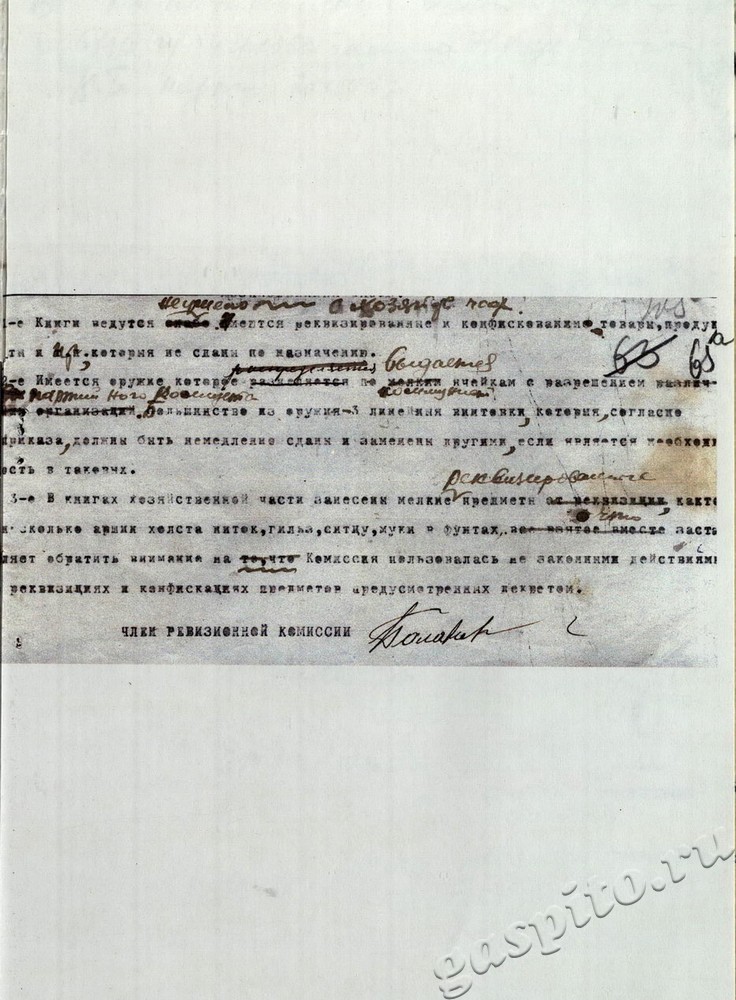 неумело в хозяйс. час.
1-е Книги ведутся слабо. Имеется реквизированные и конфискованные товары, проду
ти и пр., которыя не сданы по назначению.
распределяются выдается
65 65а
2-е Имеется оружие которое размещается по мелким ячейкам с разрешением различ-
партийного Комитета
организаций. Большинство из оружия-3 линейныя винтовки, которыя, согласно
приказа, должны быть немедленно сданы и заменены другими, если является необходи
ость в таковых.
реквизированные
3-е В книгах хозяйственной части занесены мелкие предметы от реквизиции, както
что
несколько аршин холста ниток, гильз, ситцу, муки в фунтах, вместе заста
ляет обратить внимание на то, что Комиссия пользовалась не законными действиями
реквизициях и конфискациях предметов предусмотренных декретом.
ЧЛЕН РЕВИЗИОННОЙ КОМИССИИ
gaspito.ru